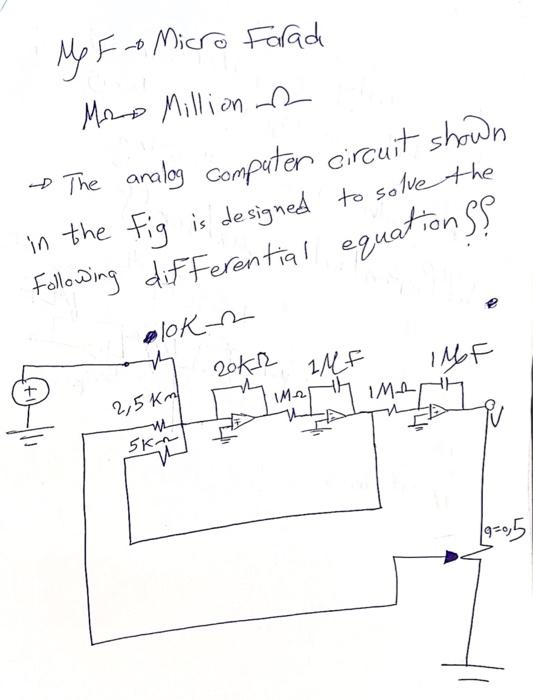 MμF → Micro Farad
MΩ → Million Ω
→ The analog computer circuit shown
in the fig is designed to solve the
following differential equation ??
10K Ω
20KΩ 1MF 1MμF
2,5 KΩ 1MΩ 1MΩ
5KΩ
V
a=0,5